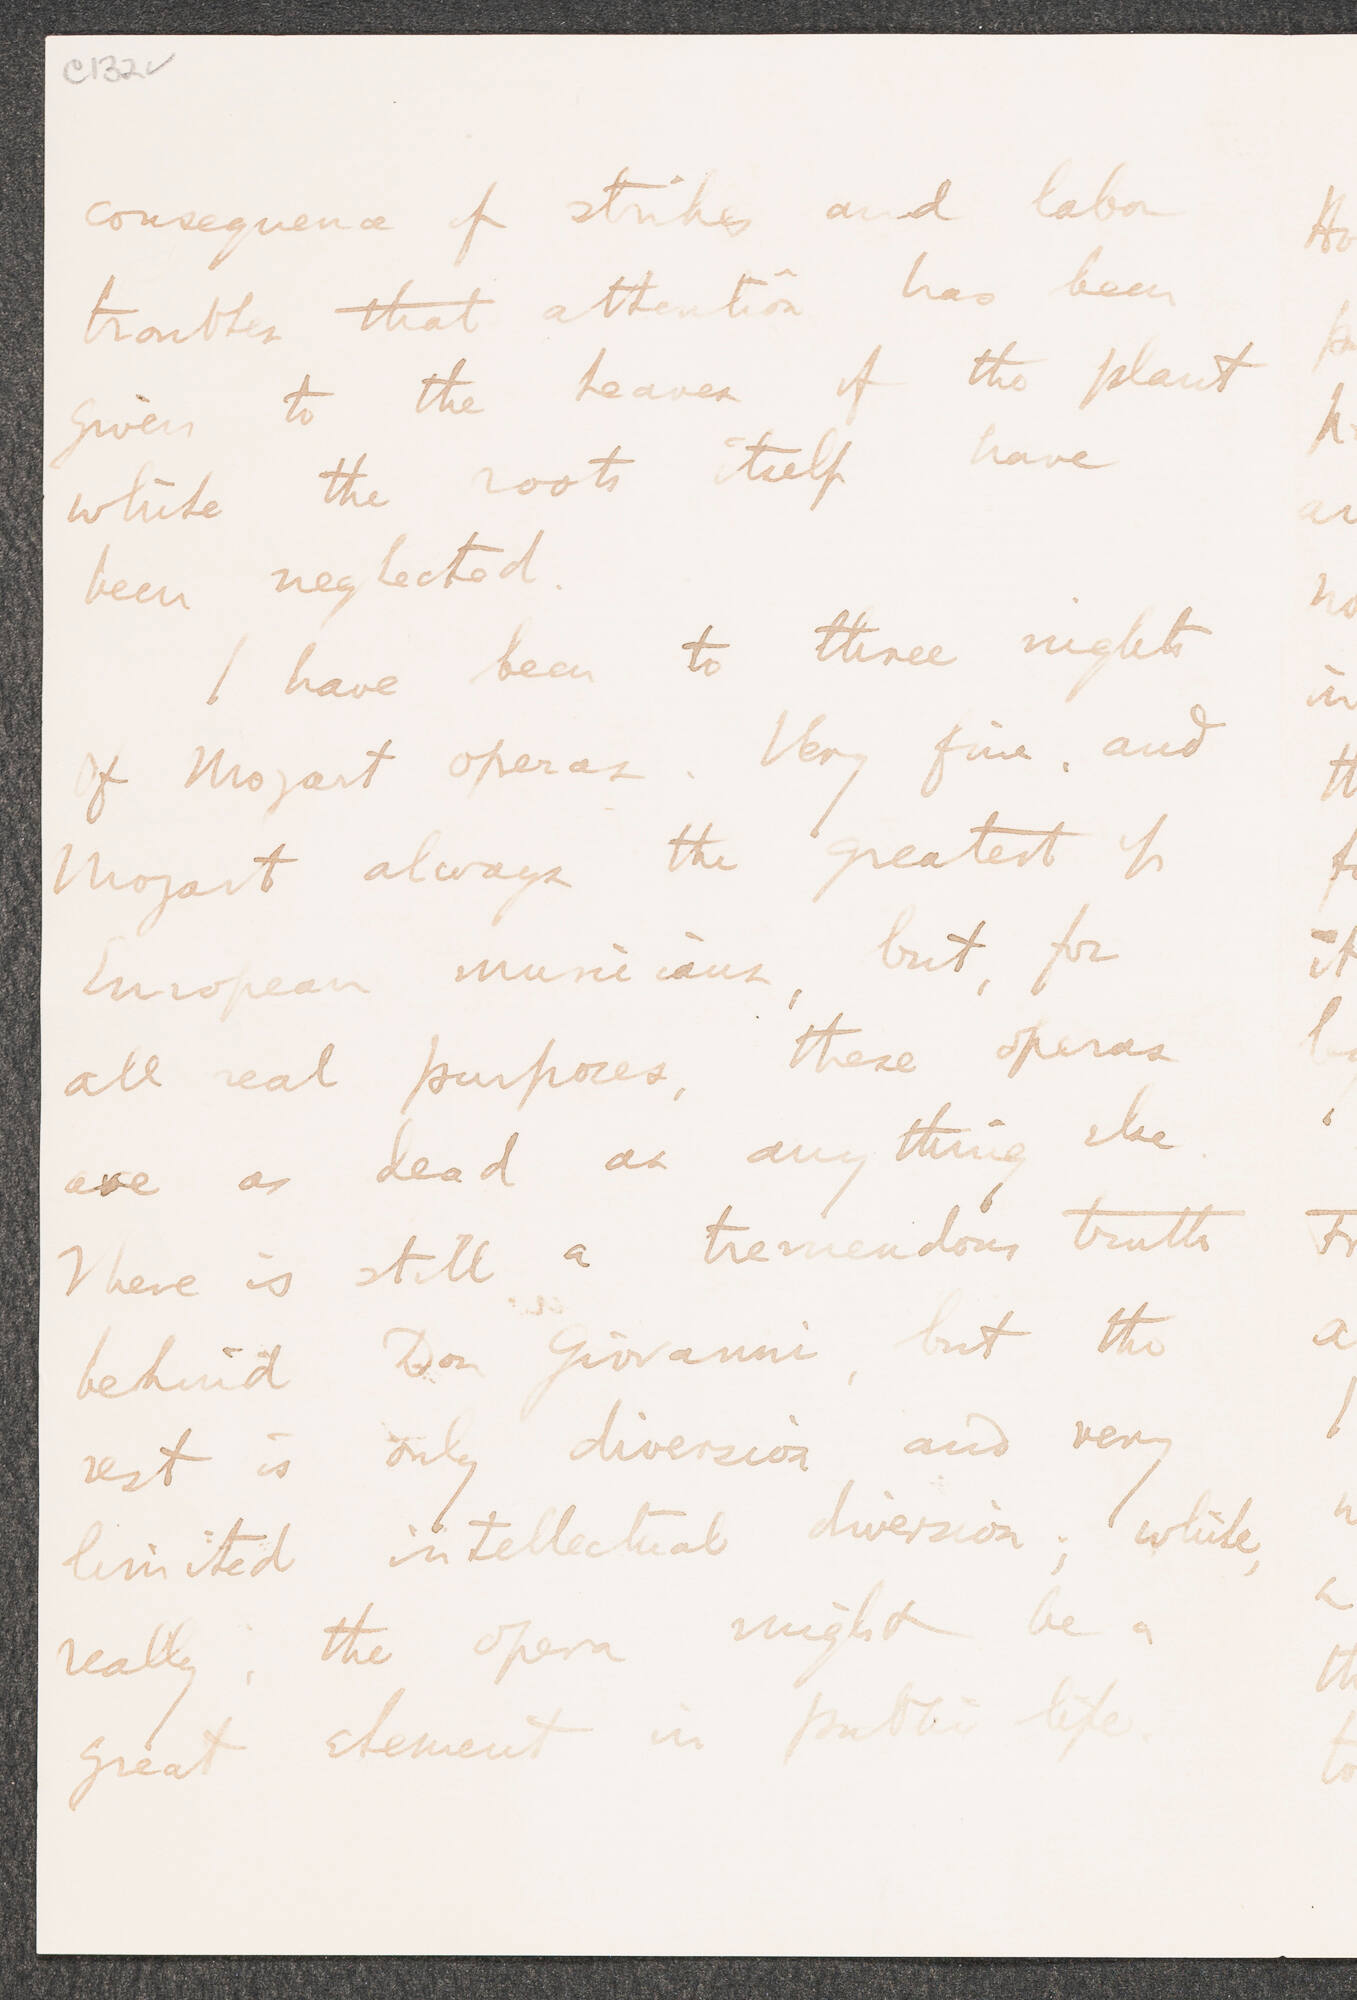 C132v
consequence of strikes and labor
troubles that attention has been
given to the leaves of the plant
while the roots itself have
been neglected.
I have been to three nights
of Mozart operas. Very fine, and
Mozart always the greatest of
European musicians, but, for
all real purposes, these operas
are as dead as anything else.
There is still a tremendous truth
behind Don Giovanni, but the
rest is only diversion and very
limited intellectual diversion; while,
really, the opera might be a
great element in public life.